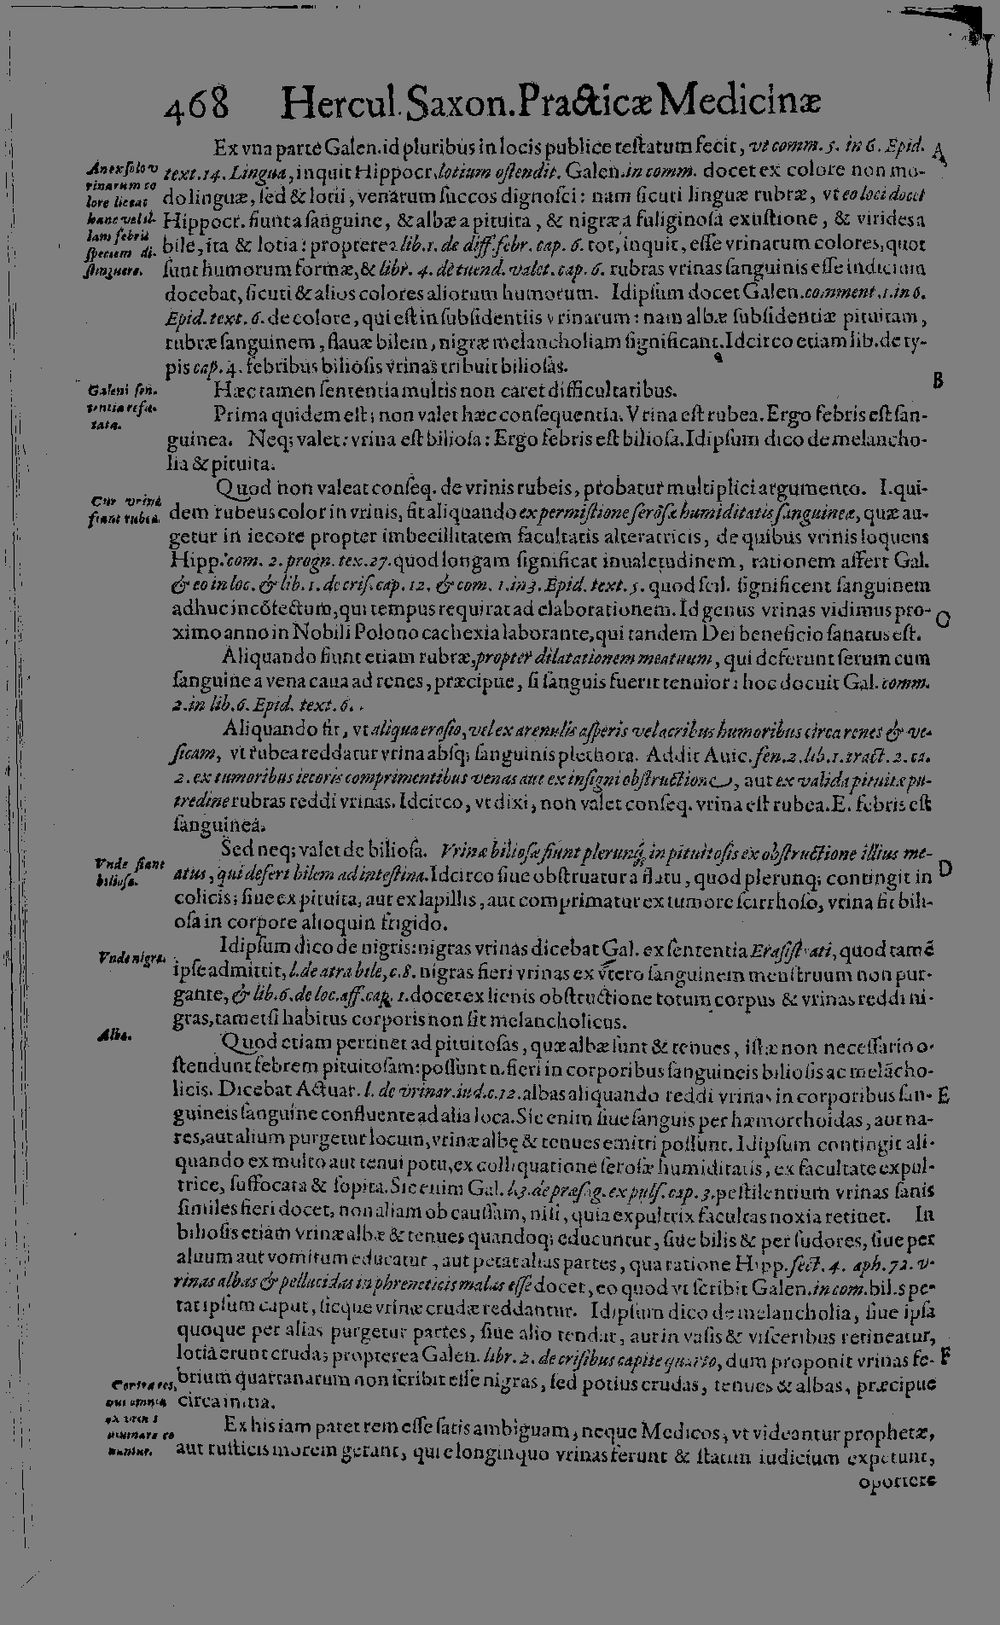 468 Hercul. Saxon. Practicæ Medicinæ
Ex vna parte Galen. id pluribus in locis publice testatum fecit, vt comm. 5. in 6. Epid. A
text. 14. Lingua, inquit Hippocr. lotium ostendit. Galen. in comm. docet ex colore non mo-
do linguæ, sed & lotii, venarum succos dignosci: nam sicuti linguæ rubræ, vt eo loci docet
Hippocr. fiunt a sanguine, & albæ a pituita, & nigræ a fuliginosa exustione, & virides a
bile, ita & lotia: propterea lib. 1. de diff. febr. cap. 6. tot, inquit, esse vrinarum colores, quot
sunt humorum formæ, & libr. 4. de tuend. valet. cap. 6. rubras vrinas sanguinis esse indicium
docebat, sicuti & alios colores aliorum humorum. Idipsum docet Galen. comment. 1. in 6.
Epid. text. 6. de colore, qui est in subsidentiis vrinarum: nam albæ subsidentiæ pituitam,
rubræ sanguinem, flauæ bilem, nigræ melancholiam significant. Idcirco etiam lib. de ty-
pis cap. 4. febribus biliosis vrinas tribuit biliosas.
An ex solo v
rinarum co
lore liceat
hanc vel il-
lam febris
speciem di-
stinguere.
Hæc tamen sententia multis non caret difficultatibus. B
Prima quidem est; non valet hæc consequentia. Vrina est rubea. Ergo febris est san-
guinea. Neq; valet: vrina est biliosa: Ergo febris est biliosa. Idipsum dico de melancho-
lia & pituita.
Galeni sen-
tentia refu-
tata.
Quod non valeat conseq. de vrinis rubeis, probatur multiplici argumento. I. qui-
dem rubeus color in vrinis, fit aliquando ex permistione serosæ humiditatis sanguineæ, quæ au-
getur in iecore propter imbecillitatem facultatis alteratricis, de quibus vrinis loquens
Hipp. com. 2. progn. tex. 27. quod longam significat inualetudinem, rationem affert Gal.
& eo in loc. & lib. 1. de cris. cap. 12. & com. 1. in 3. Epid. text. 5. quod scil. significent sanguinem
adhuc incõtectum, qui tempus requirat ad elaborationem. Id genus vrinas vidimus pro- C
ximo anno in Nobili Polono cachexia laborante, qui tandem Dei beneficio sanatus est.
Cur vrinæ
fiant rubeæ.
Aliquando fiunt etiam rubræ, propter dilatationem meatuum, qui deferunt serum cum
sanguine a vena caua ad renes, præcipue, si sanguis fuerit tenuior: hoc docuit Gal. comm.
2. in lib. 6. Epid. text. 6.
Aliquando fit, vt aliqua erosio, vel ex arenulis asperis vel acribus humoribus circa renes & ve-
sicam, vt rubea reddatur vrina absq; sanguinis plethora. Addit Auic. fen. 2. lib. 1. tract. 2. ca.
2. ex tumoribus iecoris comprimentibus venas aut ex insigni obstructione, aut ex valida pituitæ pu-
tredine rubras reddi vrinas. Idcirco, vt dixi, non valet conseq. vrina est rubea. E. febris est
sanguinea.
Sed neq; valet de biliosa. Vrinæ biliosæ fiunt plerunq; in pituitosis ex obstructione illius me-
atus, qui defert bilem ad intestina. Idcirco siue obstruatur a flatu, quod plerunq; contingit in D
colicis; siue ex pituita, aut ex lapillis, aut comprimatur ex tumore scirrhoso, vrina fit bili-
osa in corpore alioquin frigido.
Vnde fiant
biliosæ.
Idipsum dico de nigris: nigras vrinas dicebat Gal. ex sententia Erasistrati, quod tamẽ
ipse admittit, l. de atra bile, c. 8. nigras fieri vrinas ex vtero sanguinem menstruum non pur-
gante, & lib. 6. de loc. aff. cap. 1. docet ex lienis obstructione totum corpus & vrinas reddi ni-
gras, tametsi habitus corporis non sit melancholicus.
Vnde nigræ.
Quod etiam pertinet ad pituitosas, quæ albæ sunt & tenues, istæ non necessario o-
stendunt febrem pituitosam: possunt n. fieri in corporibus sanguineis biliosis ac melãcho-
licis. Dicebat Actuar. l. de vrinar. iud. c. 12. albas aliquando reddi vrinas in corporibus san- E
guineis sanguine confluente ad alia loca. Sic enim siue sanguis per hæmorrhoidas, aut na-
res, aut alium purgetur locum, vrinæ albę & tenues emitti possunt. Idipsum contingit ali-
quando ex multo aut tenui potu, ex colliquatione serosæ humiditatis, ex facultate expul-
trice, suffocata & sopita. Sic enim Gal. l. 3. de præsag. ex puls. cap. 3. pestilentium vrinas sanis
similes fieri docet, non aliam ob caussam, nisi, quia expultrix facultas noxia retinet. In
biliosis etiam vrinæ albæ & tenues quandoq; educuntur, siue bilis & per sudores, siue per
aluum aut vomitum educatur, aut petat alias partes, qua ratione Hipp. sect. 4. aph. 72. v-
rinas albas & pellucidas in phreneticis malas esse docet, eo quod vt scribit Galen. in com. bilis pe-
tat ipsum caput, sicque vrinæ crudæ reddantur. Idipsum dico de melancholia, siue ipsa
quoque per alias purgetur partes, siue alio tendat, aut in vasis & visceribus retineatur,
lotia erunt cruda; propterea Galen. libr. 2. de crisibus capite quarto, dum proponit vrinas fe- F
brium quartanarum non scribit esse nigras, sed potius crudas, tenues & albas, præcipue
circa initia.
Albæ.
Ex his iam patet rem esse satis ambiguam, neque Medicos, vt videantur prophetæ,
aut rusticis morem gerant, qui e longinquo vrinas ferunt & statim iudicium expetunt,
Contra eos,
qui omnia
ex vrinis
diuinare co
nantur.
oportere